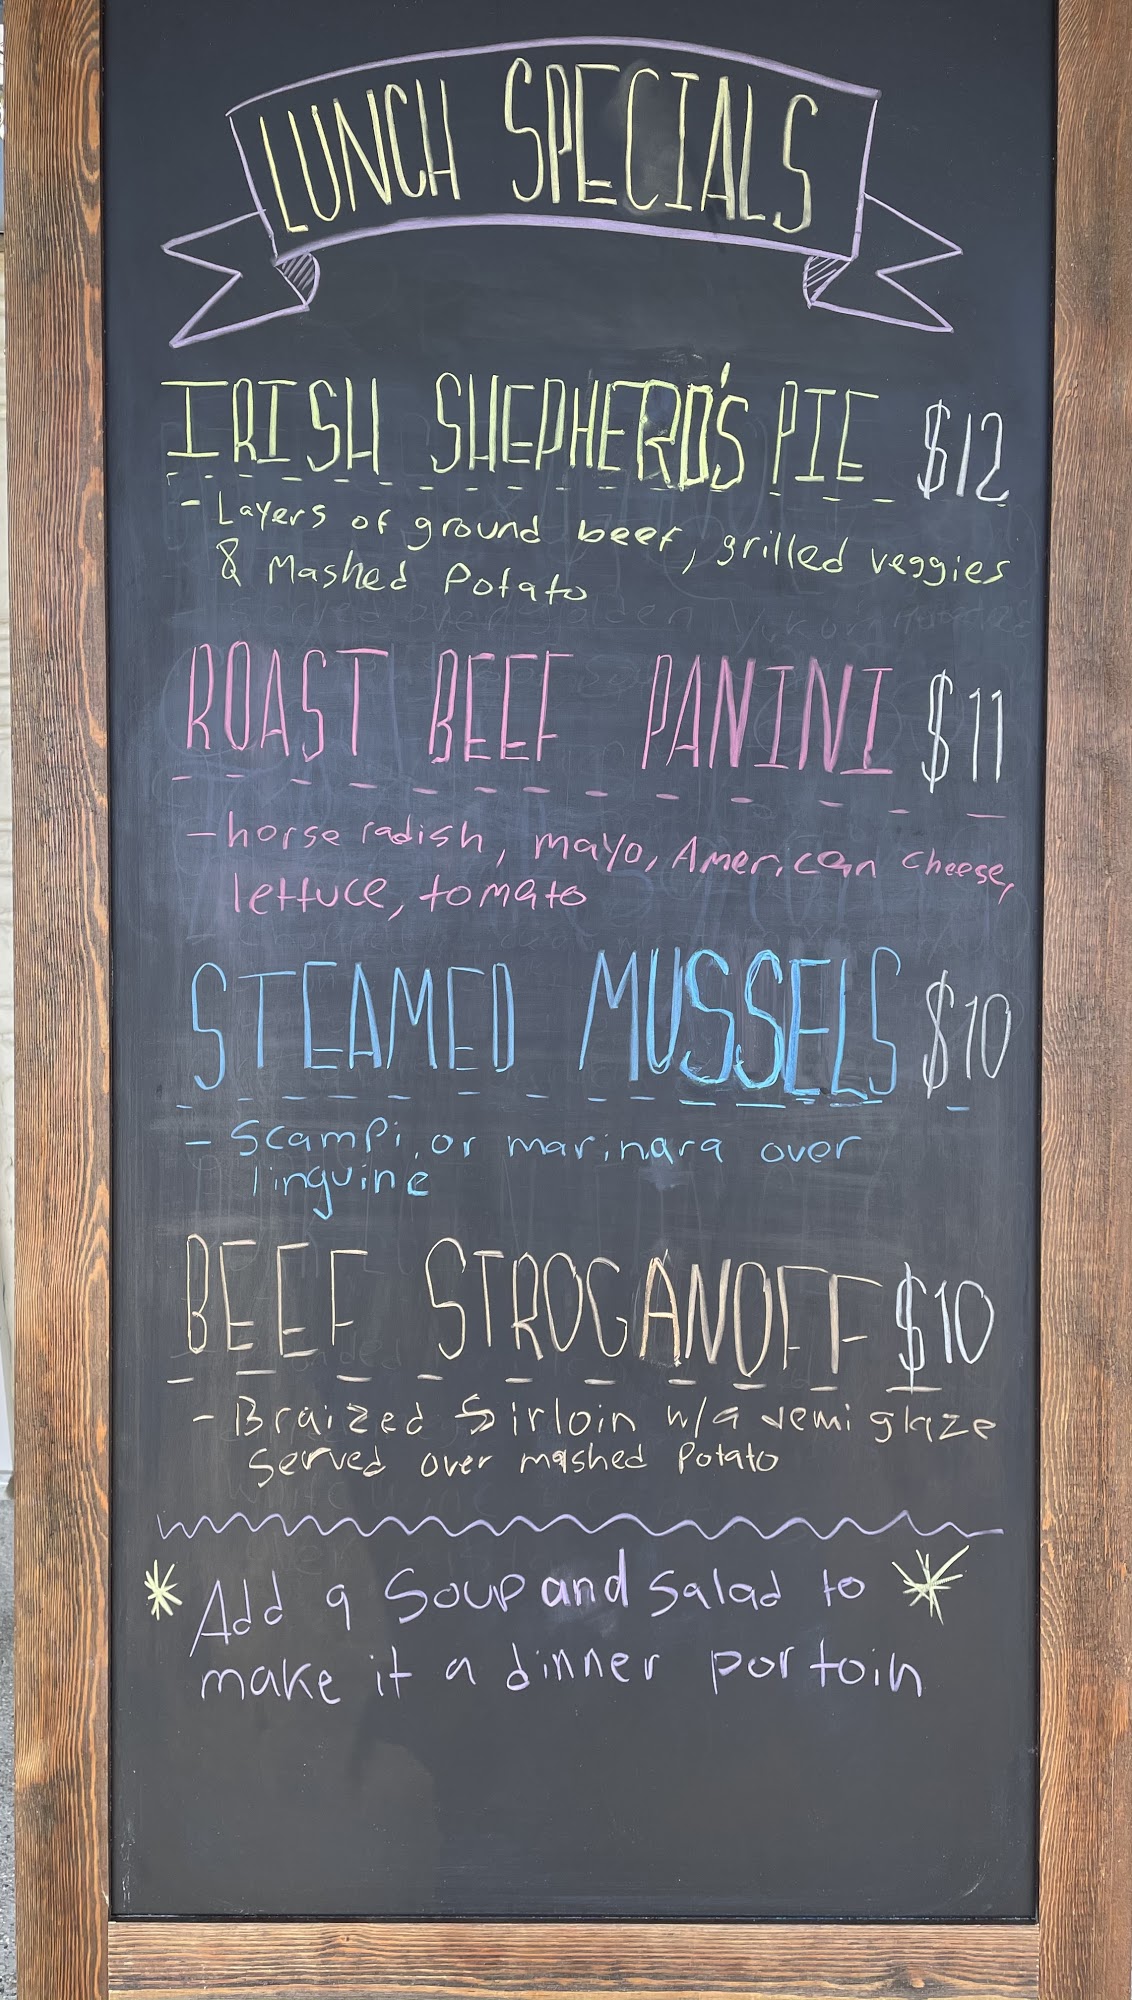 LUNCH SPECIALS
IRISH SHEPHERD'S PIE $12
- Layers of ground beef, grilled veggies
& Mashed Potato
ROAST BEEF PANINI $11
- horse radish, mayo, American cheese,
lettuce, tomato
STEAMED MUSSELS $10
- Scampi, or marinara over
linguine
BEEF STROGANOFF $10
- Braized Sirloin w/a demi glaze
served over mashed Potato
* Add a Soup and Salad to *
make it a dinner portoin